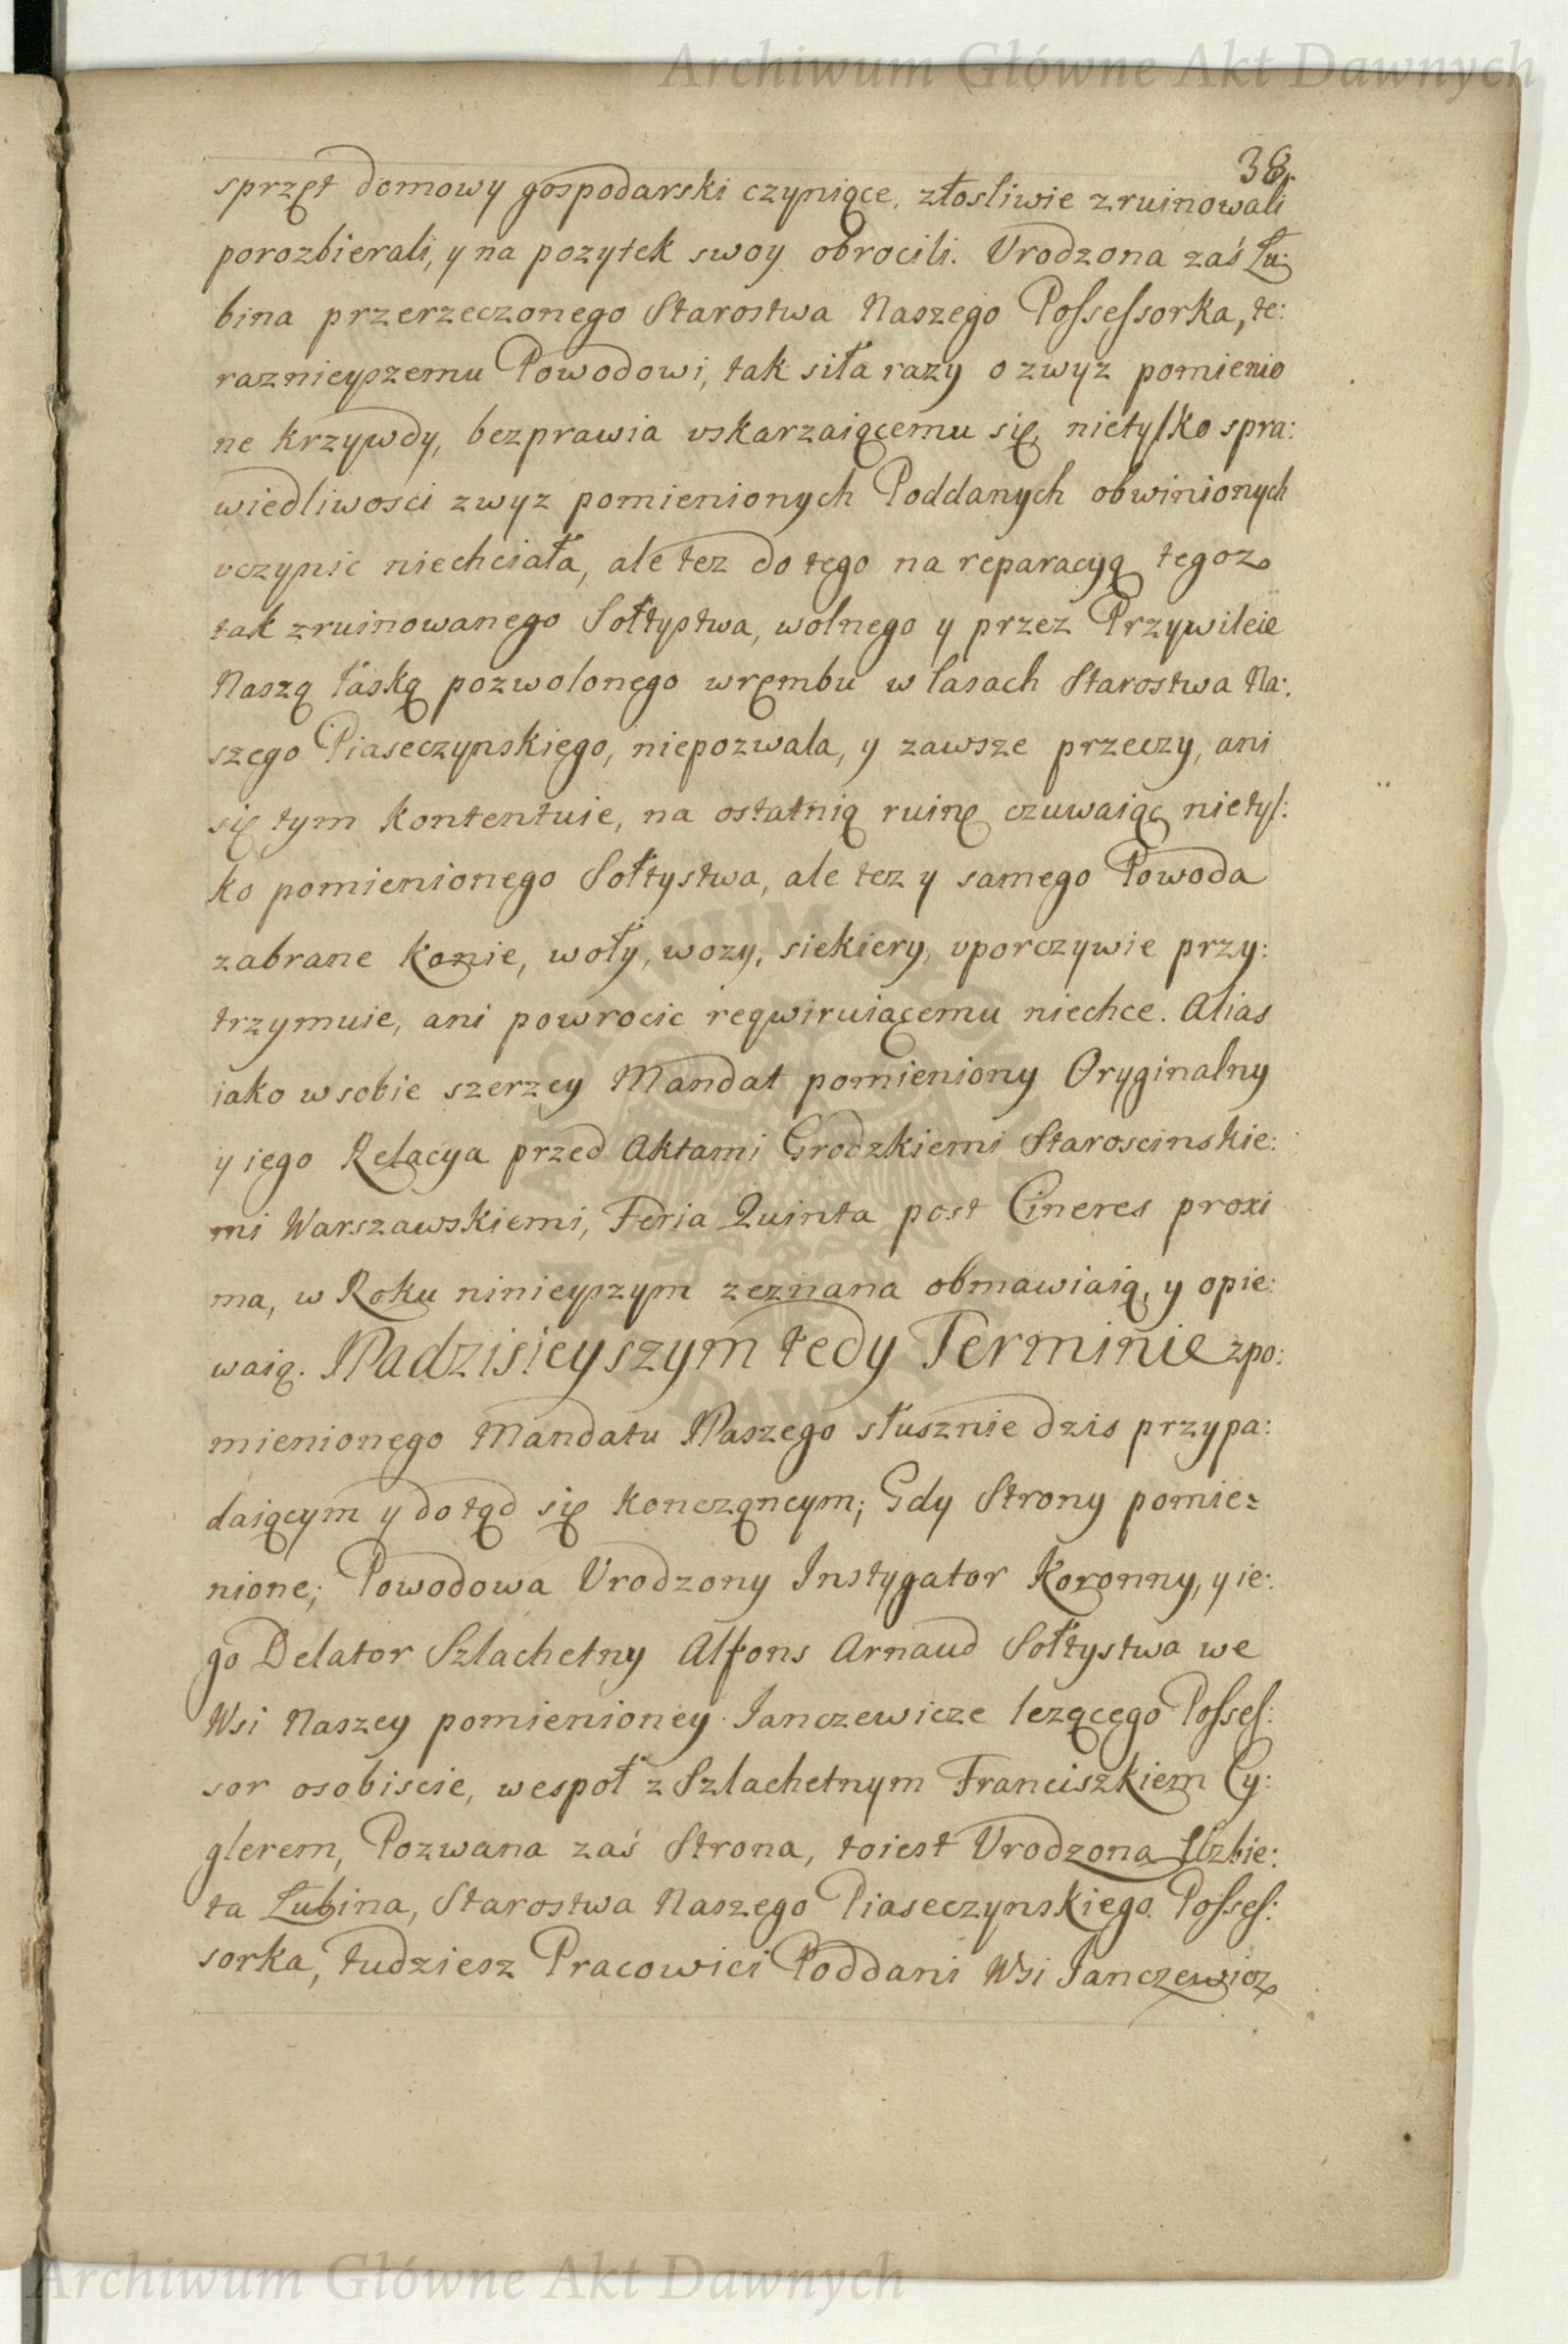 Archiwum Główne Akt Dawnych
38.
sprzęt domowy gospodarski czyniące, złosliwie zruinowali
porozbierali, y na pozytek swoy obrocili. Vrodzona zaś Łu:
bina przerzeczonego Starostwa Naszego Poſseſsorka, te:
raznieyszemu Powodowi, tak siła razy o zwyz pomienio
ne krzywdy, bezprawia vskarzaiącemu się, nietylko spra:
wiedliwosci zwyz pomienionych Poddanych obwinionych
vczynic niechciała, ale tez do tego na reparacyą tegoz
tak zruinowanego Sołtystwa, wolnego y przez Przywileie
Naszą łaską pozwolonego wrembu w lasach Starostwa Na:
szego Piaseczynskiego, niepozwala, y zawsze przeczy, ani
się tym kontentuie, na ostatnią ruinę czuwaiąc nietyl:
ko pomienionego Sołtystwa, ale tez y samego Powoda
zabrane konie, woły, wozy, siekiery, vporczywie przy:
trzymuie, ani powrocic reqwiruiącemu niechce. Alias
iako w sobie szerzey Mandat pomieniony Oryginalny
y iego Relacya przed Aktami Grodzkiemi Staroscinskie:
mi Warszawskiemi, Feria Quinta post Cineres proxi
ma, w Roku ninieyszym zeznana obmawiaią, y opie:
waią. Nadzisieyszym tedy Terminie zpo:
mienionego Mandatu Naszego słusznie dzis przypa:
daiącym y do tąd się konczącym; Gdy Strony pomie:
nione; Powodowa Vrodzony Instygator Koronny, y ie:
go Delator Szlachetny Alfons Arnaud Sołtystwa we
Wsi Naszey pomienioney Janczewicze lezącego Poſseſ:
sor osobiscie, wespoł z Szlachetnym Franciszkiem Cy:
glerem, Pozwana zaś Strona, toiest Vrodzona Elzbie:
ta Łubina, Starostwa Naszego Piaseczynskiego Poſseſ:
sorka, tudziesz Pracowici Poddani Wsi Janczewicz
Archiwum Główne Akt Dawnych